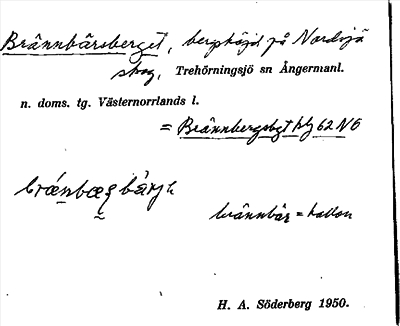 Brännbärsberget, berghöjd på Nordsjö
skog, Trehörningsjö sn Ångermanl.
n. doms. tg. Västernorrlands l.
= Brännbergsbgt hlg 62 N6
brännbär = hallon
H. A. Söderberg 1950.